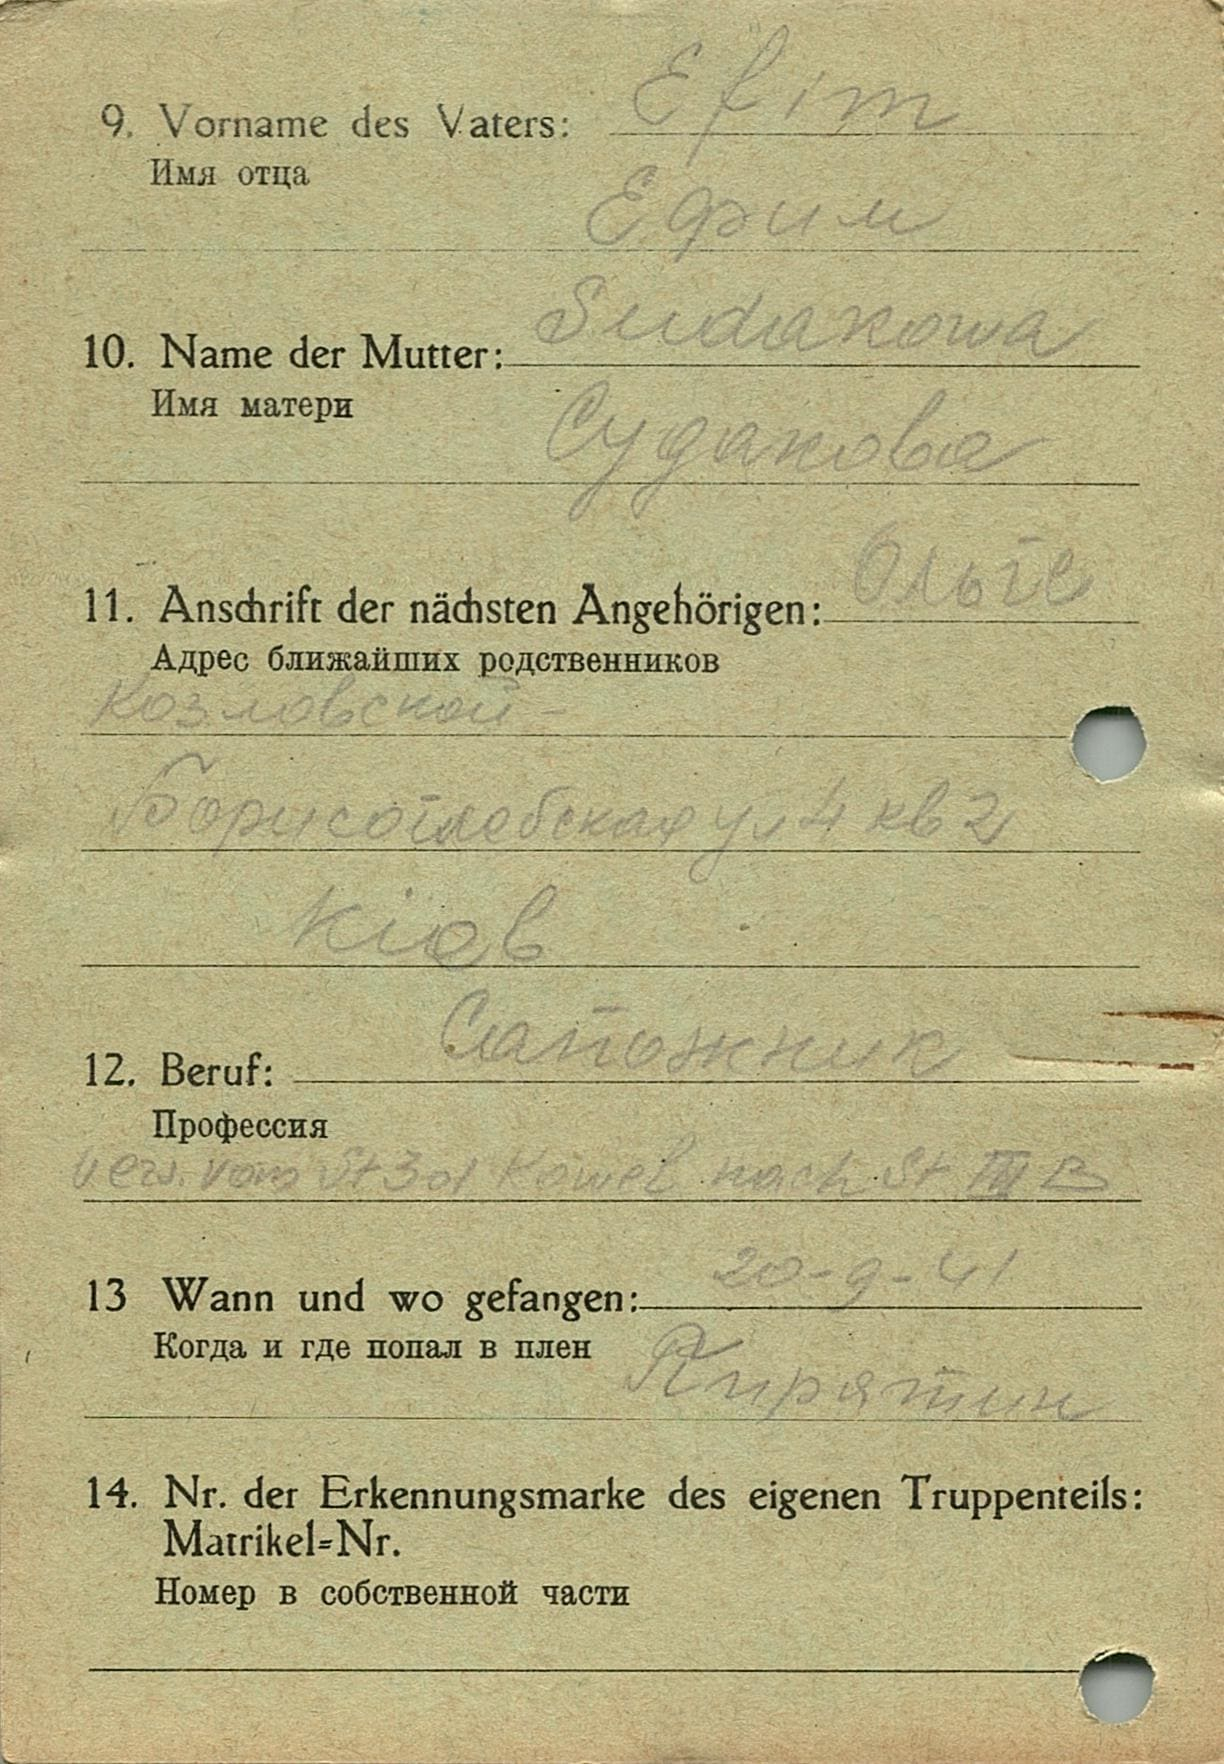 Efim
9. Vorname des Vaters:
Имя отца
Ефим
Sudakowa
10. Name der Mutter:
Имя матери
Судакова
11. Anschrift der nächsten Angehörigen: Ольге
Адрес ближайших родственников
Козловской -
Борисоглебская ул 4 кв 2
Кіев
12. Beruf: Сапожник
Профессия
vers. vom St 301 Kowel nach St III B
13 Wann und wo gefangen: 20-9-41
Когда и где попал в плен
Пирятин
14. Nr. der Erkennungsmarke des eigenen Truppenteils:
Matrikel=Nr.
Номер в собственной части